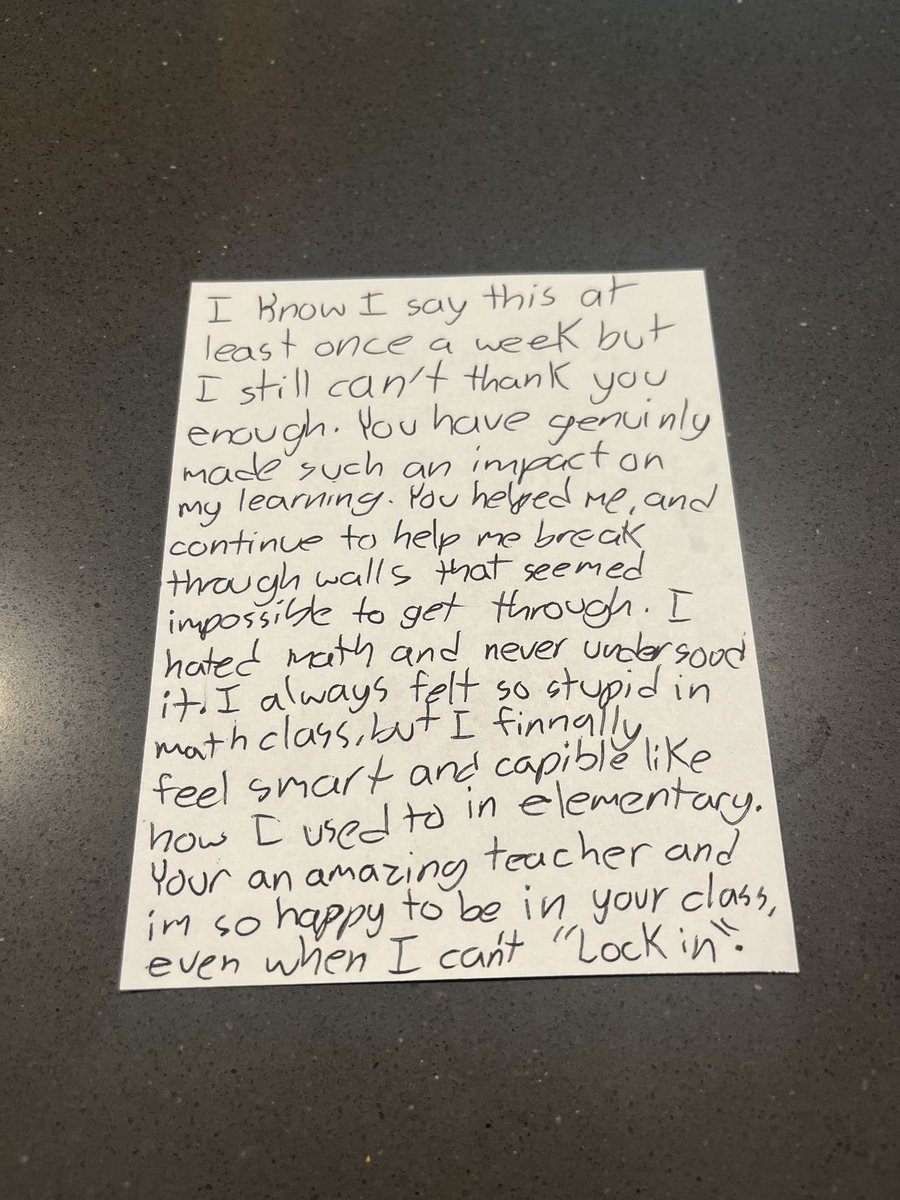 I know I say this at
least once a week but
I still can't thank you
enough. You have genuinly
made such an impact on
my learning. You helped me, and
continue to help me break
through walls that seemed
impossible to get through. I
hated math and never undersood
it. I always felt so stupid in
math class, but I finnally
feel smart and capible like
how I used to in elementary.
Your an amazing teacher and
im so happy to be in your class,
even when I can't "Lock in".